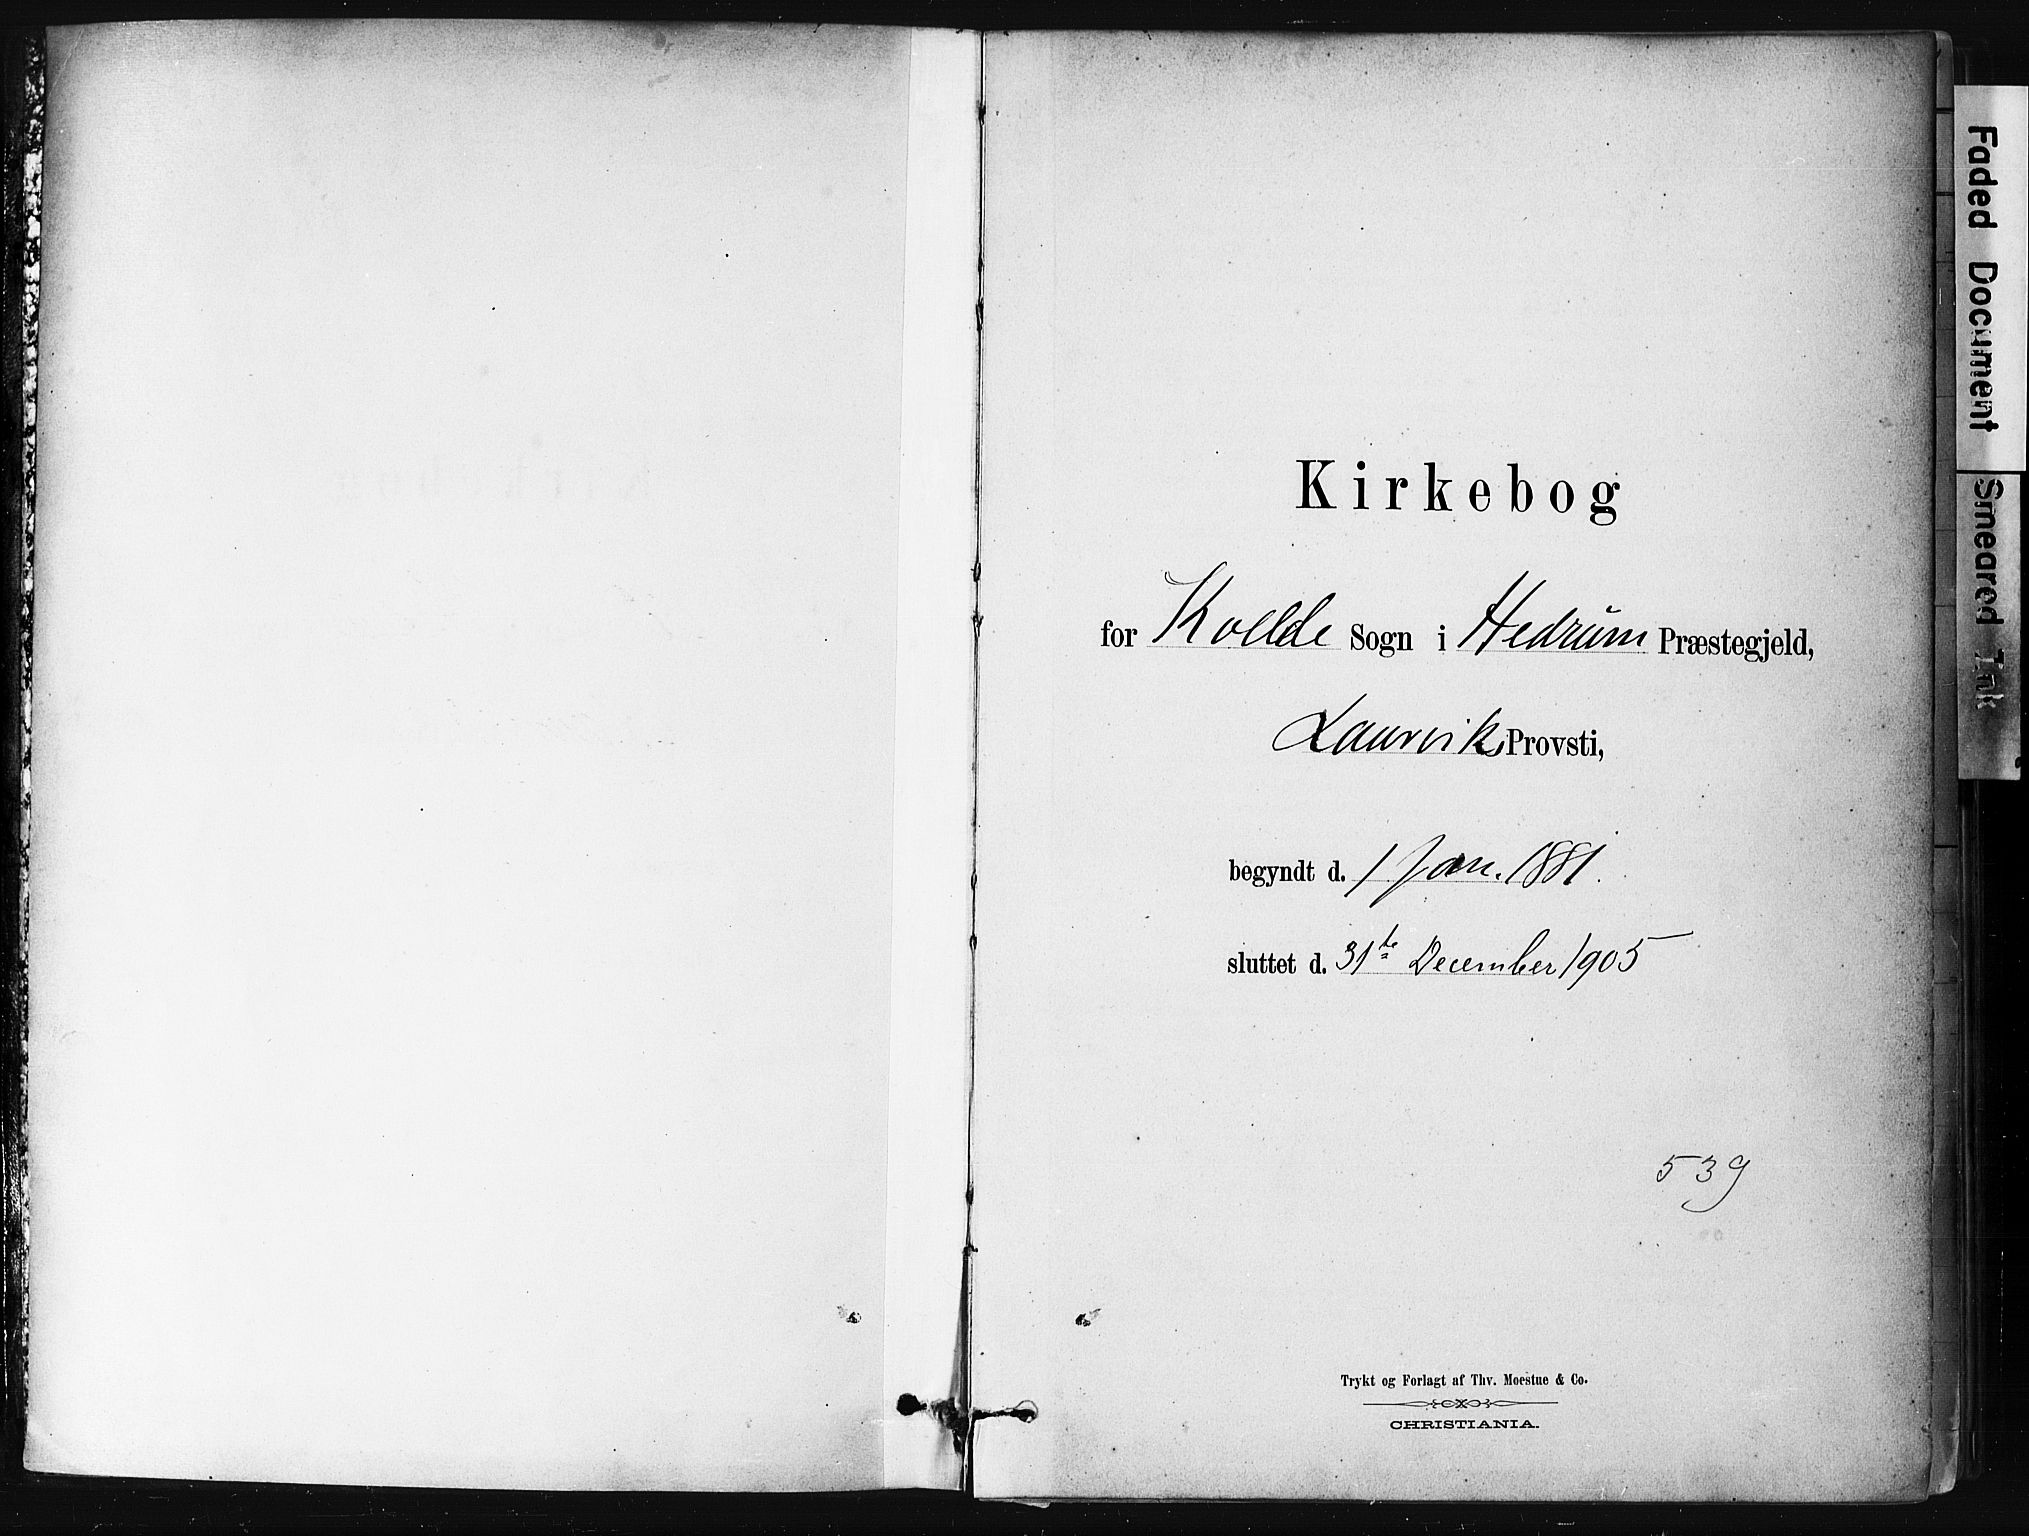 Kirkebog
for Kvelde Sogn i Hedrum Præstegjeld,
Laurvik Provsti,
begyndt d. 1 Jan. 1881.
sluttet d. 31te December 1905
539
Trykt og Forlagt af Thv. Moestue & Co.
CHRISTIANIA.
Faded Document
Smeared Ink